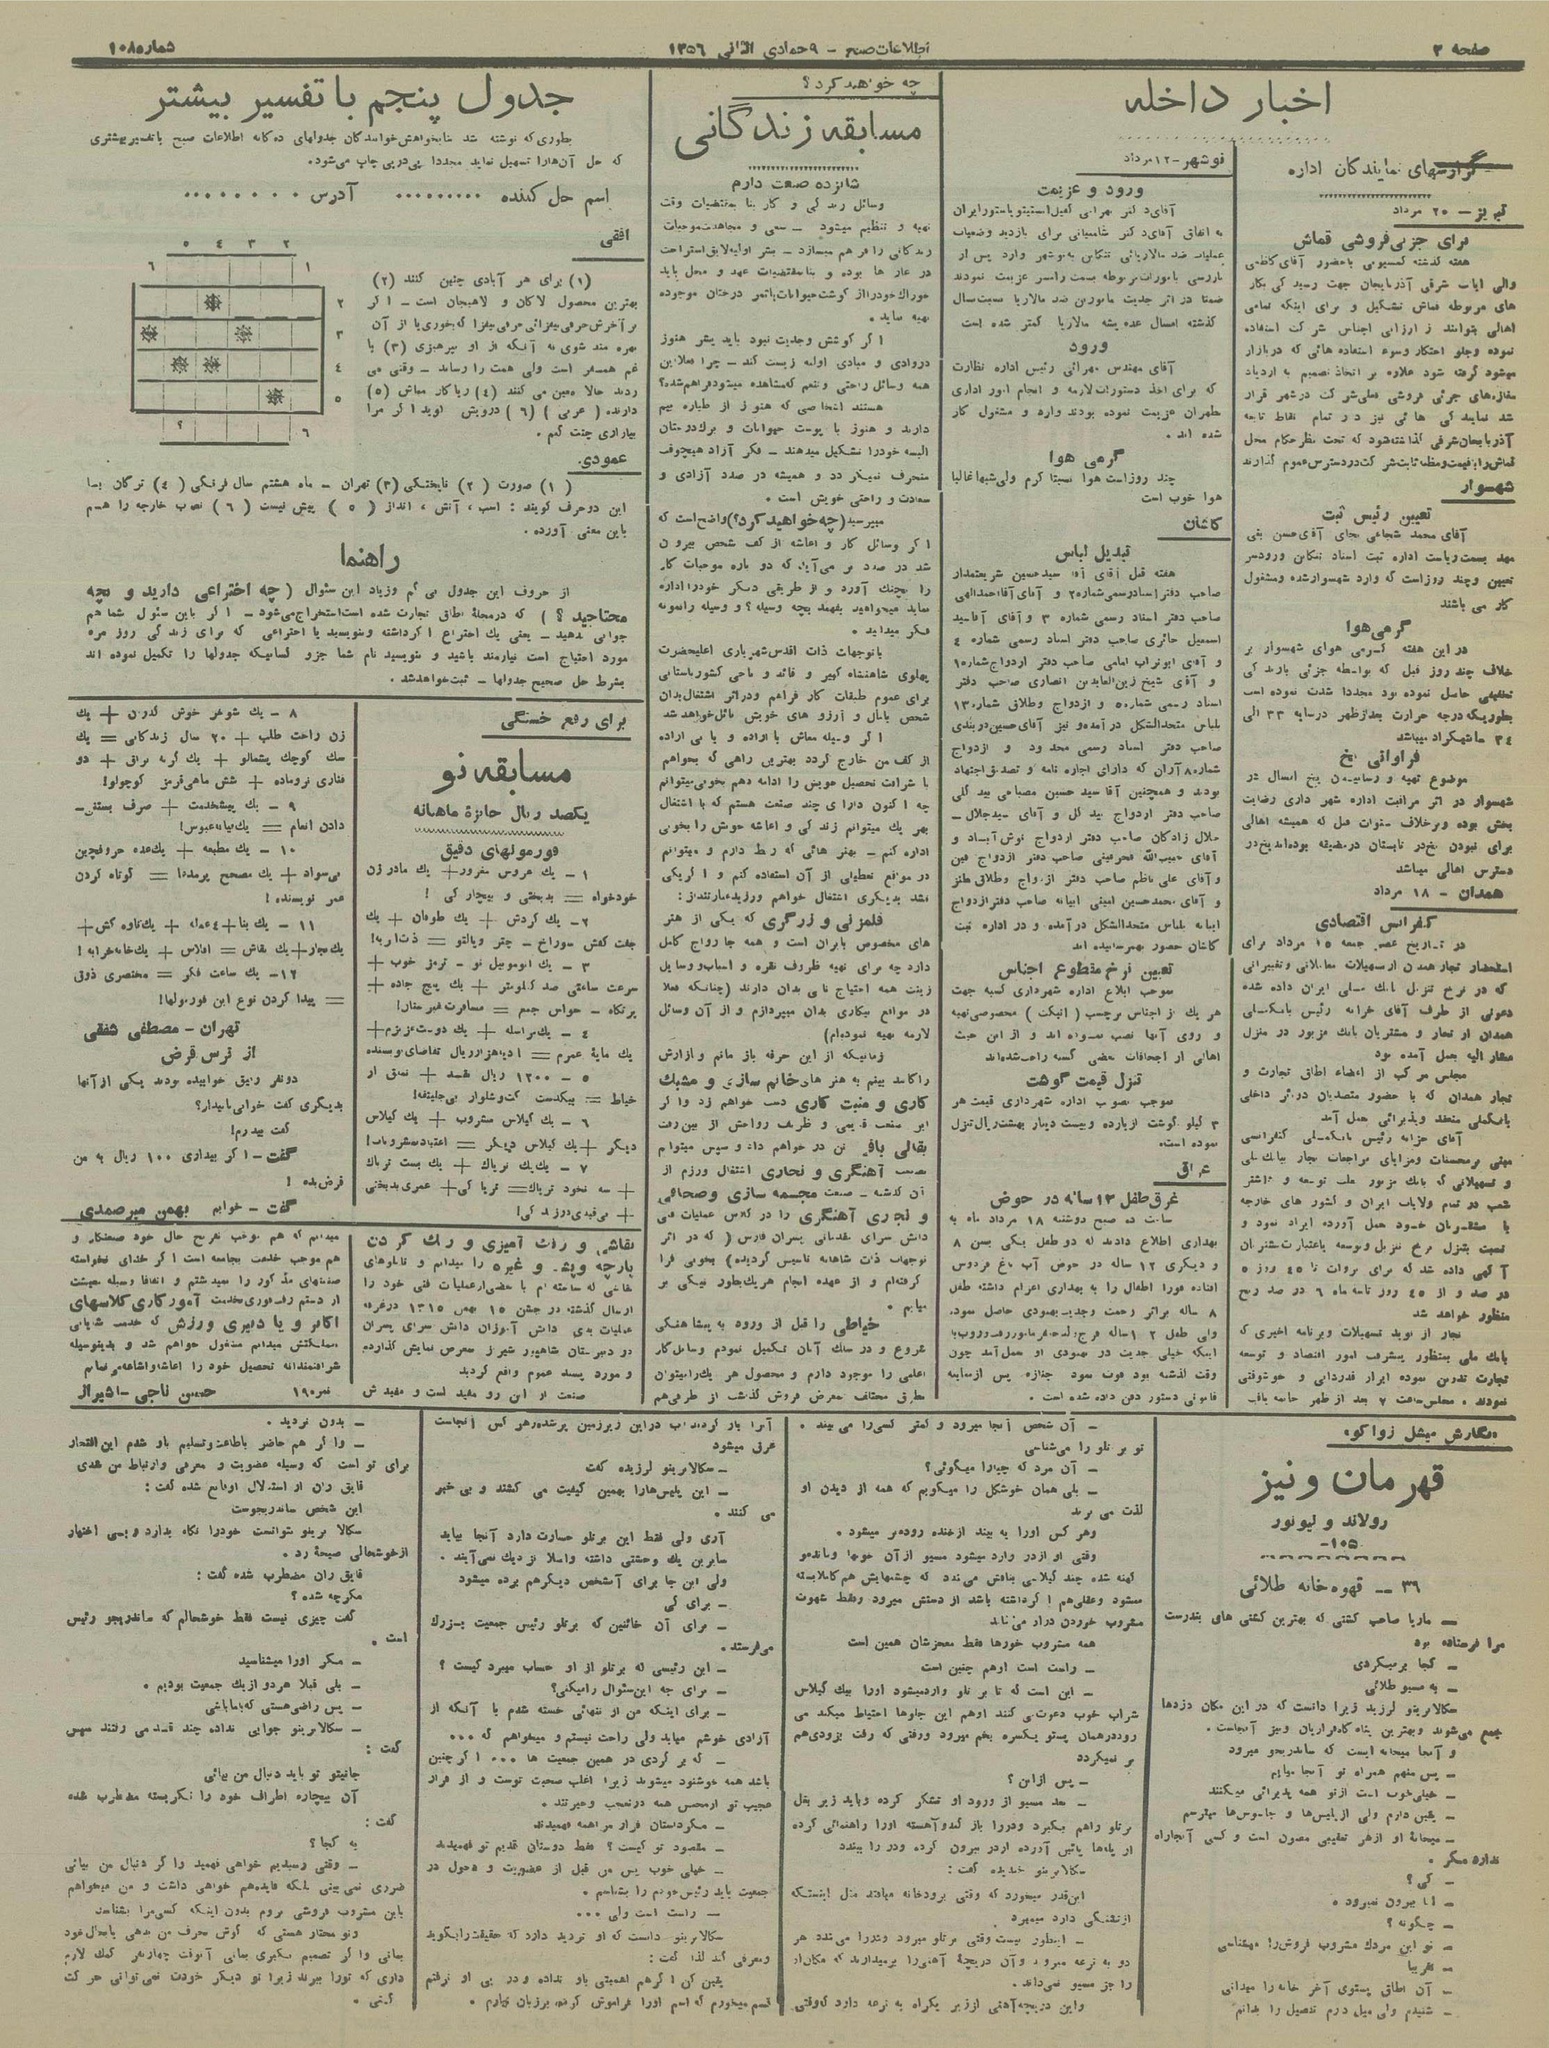 صفحه ۲
اطلاعات صبح – ۹ جمادی الثانی ۱۳۵۶
شماره ۱۰۸
اخبار داخله
گزارشهای نمایندگان اداره
تبریز – ۲۰ مرداد
برای جزئی‌فروشی قماش
هفته گذشته کمسیونی باحضور آقای کاظمی
والی ایالت شرقی آذربایجان جهت رسیدگی بکار
های مربوطه قماش تشکیل و برای اینکه تمامی
اهالی بتوانند از ارزانی اجناس شرکت استفاده
نموده وجلو احتکار وسوء استفاده هائی که دربازار
میشود گرفته شود علاوه بر اتخاذ تصمیم به ازدیاد
مغازه‌های جزئی فروشی فعلی شرکت درشهر قرار
شد نمایندگی هائی نیز در تمام نقاط تابعه
آذربایجان‌شرقی گذاشته‌شود که تحت نظر حکام محل
قماش را بقیمت ومظنه ثابت شرکت دردسترس عموم گذارند
شهسوار
تعیین رئیس ثبت
آقای محمد شجاعی بجای آقای حسن بنی
مهد بسمت ریاست اداره ثبت اسناد تنکابن ورودسر
تعیین وچند روزاست که وارد شهسوار شده ومشغول
کار می باشند
گرمی هوا
در این هفته گرمی هوای شهسوار بر
خلاف چند روز قبل که بواسطه جزئی بارندگی
تخفیفی حاصل نموده بود مجددا شدت نموده است
بطوریکه درجه حرارت بعدازظهر درسایه ۳۳ الی
۳۴ سانتیگراد میباشد
فراوانی یخ
موضوع تهیه و رسانیدن یخ امسال در
شهسوار در اثر مراقبت اداره شهرداری رضایت
بخش بوده وبرخلاف سنوات قبل که همیشه اهالی
برای نبودن یخ در تابستان درمضیقه بوده‌اند یخ در
دسترس اهالی میباشد
همدان – ۱۸ مرداد
کنفرانس اقتصادی
در تاریخ عصر جمعه ۱۵ مرداد برای
استحضار تجار همدان ازتسهیلات معاملاتی وتغییراتی
که در نرخ تنزیل بانک ملی ایران داده شده
دعوتی از طرف آقای خزانه رئیس بانک ملی
همدان از تجار و مشتریان بانک مزبور در منزل
مشارالیه بعمل آمده بود
مجلس مرکب از اعضاء اطاق تجارت و
تجار همدان که با حضور متصدیان دوائر داخلی
بانک‌ملی منعقد وپذیرائی بعمل آمد
آقای خزانه رئیس بانک ملی کنفرانسی
مبنی برمحسنات ومزایای مراجعات تجار ببانک ملی
و تسهیلاتی که بانک مزبور
شعب در تمام ولایات ایران و کشور های خارجه
با مشتریان خود بعمل آورده ایراد نمود و
نسبت بتنزل نرخ تنزیل وتوسعه باعتبارات مشتریان
آگهی داده شد که برای بروات تا ۴۵ روز ۵
در صد و از ۴۵ روز تا سه ماه ۶ در صد ربح
منظور خواهد شد
تجار از نوید تسهیلات وبرنامه اخیری که
بانک ملی بمنظور پیشرفت امور اقتصاد و توسعه
تجارت تدوین نموده ابراز قدردانی و خوشوقتی
نمودند . مجلس ساعت ۷ بعد از ظهر خاتمه یافت
نوشهر – ۱۲ مرداد
ورود و عزیمت
آقای دکتر مهرابی کفیل انستیتو پاستور ایران
به اتفاق آقای دکتر شامبیاتی برای بازدید وضعیات
عملیات ضد مالاریائی تنکابن بنوشهر وارد پس از
بازرسی بامورات مربوطه بسمت رامسر عزیمت نمودند
ضمنا در اثر جدیت مامورین ضد مالاریا نسبت بسال
گذشته امسال عده پشه مالاریا کمتر شده است
ورود
آقای مهندس مهرائی رئیس اداره نظارت
که برای اخذ دستورات لازمه و انجام امور اداری
بطهران عزیمت نموده بودند وارد و مشغول کار
شده اند .
گرمی هوا
چند روزاست هوا نسبتا گرم ولی شبها غالبا
هوا خوب است
کاشان
تبدیل لباس
هفته قبل آقای آقا سید حسین شریعتمدار
صاحب دفتر اسناد رسمی شماره ۲ و آقای آقا احمد الهی
صاحب دفتر اسناد رسمی شماره ۳ و آقای آقاسید
اسمعیل حائری صاحب دفتر اسناد رسمی شماره ۴
و آقای ابوتراب امامی صاحب دفتر ازدواج شماره ۱
و آقای شیخ زین‌العابدین انصاری صاحب دفتر
اسناد رسمی شماره ۵ و ازدواج وطلاق شماره ۱۳
بلباس متحدالشکل در آمده و نیز آقای حسین دربندی
صاحب دفتر اسناد رسمی محدود و ازدواج
شماره ۸ آران که دارای اجازه نامه و تصدیق اجتهاد
بودند و همچنین آقا سید حسین مصباحی بیدگلی
صاحب دفتر ازدواج بیدگل و آقای سید جلال
جلال زادگان صاحب دفتر ازدواج نوش آباد و
آقای حبیب‌الله فخرفینی صاحب دفتر ازدواج فین
و آقای علی ناظم صاحب دفتر ازدواج وطلاق طنز
و آقای محمدحسین امینی ابیانه صاحب دفتر ازدواج
ابیانه بلباس متحدالشکل درآمده و در اداره ثبت
کاشان حضور بهم رسانیده اند
تعیین نرخ مقطوع اجناس
بموجب ابلاغ اداره شهرداری کسبه جهت
هریک از اجناس برچسب ( اتیکت ) مخصوصی تهیه
و روی آنها نصب نموده‌اند و از این حیث
اهالی از اجحافات بعضی کسبه راحت شده‌اند
تنزل قیمت گوشت
بموجب تصویب اداره شهرداری قیمت هر
۳ کیلو گوشت ازیازده وبیست دینار بهشت ریال تنزل
نموده است.
عراق
غرق طفل ۱۳ ساله در حوض
ساعت ده صبح دوشنبه ۱۸ مرداد ماه به
بهداری اطلاع دادند که دو طفل یکی بسن ۸
و دیگری ۱۲ ساله در حوض آب باغ فردوس
افتاده فورا اطفال را به بهداری اعزام داشته طفل
۸ ساله براثر زحمت وجدیت بهبودی حاصل نمود.
ولی طفل ۱۲ ساله
اینکه خیلی جدیت در بهبودی او بعمل آمد چون
وقت گذشته بود فوت نمود جنازه پس ازمعاینه
قانونی دستور دفن داده شده است .
چه خواهید کرد؟
مسابقه زندگانی
شانزده صنعت دارم
وسائل زندگی و کار بنا بمقتضیات وقت
تهیه و تنظیم میشود – سعی و مجاهدت موجبات
زندگانی را فراهم میسازد – بشر اولیه لایق استراحت
در غار ها بوده و بنا بمقتضیات عهد و محل باید
خوراک خود را از گوشت حیوانات یا ثمر درختان موجوده
تهیه نماید .
اگر کوشش وجدیت نبود باید بشر هنوز
در وادی و مبادی اولیه زیست کند – چرا فعلا این
همه وسائل راحتی وتنعم که مشاهده میشود فراهم شده؟
هستند اشخاصی که هنوز از طیاره بیم
دارند و هنوز با پوست حیوانات و برگ درختان
البسه خود را تشکیل میدهند – فکر آزاد هیچوقت
منحرف نمیگردد و همیشه در صدد آزادی و
سعادت و راحتی خویش است .
میپرسید (چه خواهید کرد؟) واضح است که
اگر وسائل کار و اعاشه از کف شخص بیرون
شد در صدد بر می‌آید که دو باره موجبات کار
را بچنک آورد و از طریقی دیگر خود را اداره
نماید میخواهید بفهمید بچه وسیله؟ و وسیله را نمونه
فکر میدانید .
با توجهات ذات اقدس شهریاری اعلیحضرت
پهلوی شاهنشاه کبیر و قائد و ناجی کشور باستانی
برای عموم طبقات کار فراهم ودر اثر اشتغال بدان
شخص بآمال و آرزو های خویش نائل خواهد شد
اگر وسیله معاش با اراده و یا بی اراده
از کف من خارج گردد بهترین راهی که بخواهم
با شرافت تحصیل خویش را ادامه دهم بخوبی میتوانم
چه اکنون دارای چند صنعت هستم که با اشتغال
بهر یک میتوانم زندگی و اعاشه خویش را بخوبی
اداره کنم – بهنر هائی که ربط دارم و میتوانم
در مواقع تعطیلی از آن استفاده کنم و اگر یکی
نشد بدیگری اشتغال خواهم ورزید عبارتند از:
قلمزنی و زرگری که یکی از هنر
های مخصوص بایران است و همه جا رواج کامل
دارد چه برای تهیه ظروف نقره و اسباب و وسایل
زینت همه احتیاج تامی بدان دارند (چنانکه فعلا
در مواقع بیکاری بدان میپردازم و از آن وسائل
لازمه تهیه نموده‌ام)
زمانیکه از این حرفه باز مانم و ارزش
را کاسد بینم به هنر های خاتم سازی و مشبک
کاری و منبت کاری دست خواهم زد واگر
این صنعت قدیمی و ظریف رواجش از بین رفت
بقالی بافی تن در خواهم داد و سپس میتوانم
بصنعت آهنگری و نجاری اشتغال ورزم از
آن گذشته – صنعت مجسمه سازی وصحافی
و نجاری آهنگری را در کلاس عملیات فنی
دانش سرای مقدماتی پسران فارس ( که در اثر
توجهات ذات شاهانه تاسیس گردیده) بخوبی فرا
گرفته‌ام و از عهده انجام هریک بطور نیکی بر
میآیم .
خیاطی را قبل از ورود به پیشاهنگی
شروع و در سلک آنان تکمیل نمودم وسایل کار
اعلمی را موجود دارم و محصول هر یک را میتوان
بطرق مختلف بمعرض فروش گذاشت از طرفی هم
جدول پنجم با تفسیر بیشتر
بطوری که نوشته شد بنا بخواهش خوانندگان جدولهای ده گانه اطلاعات صبح با تفسیر بیشتری
که حل آن‌ها را تسهیل نماید مجددا پی در پی چاپ می‌شود.
اسم حل کننده . . . . . . . . . آدرس . . . . . . . .
افقی
(۱) برای هر آبادی چنین کنند (۲)
بهترین محصول لاکان و لاهیجان است – اگر
بر آخرش حرفی بیفزائی حرفی بیفزا که بخوری یا از آن
بهره مند شوی نه آنکه از او بپرهیزی (۳) با
غم همسفر است ولی همت را رساند – وقتی می
زدند حالا معین می کنند (۴) ریاکار معاش (۵)
دارنده ( عربی ) (۶) درویش گوید اگر مرا
بیازاری چنت کنم .
۵ ۴ ۳ ۲
۶ ۱
۲
۳
۴
۵
؟ ۶
عمودی.
(۱) صورت (۲) نابختگی (۳) تهران – ماه هشتم سال فرنگی (۴) ترکان بسا
این دو حرف گویند : اسب ، آتش ، انداز (۵) پیش نیست (۶) نصب خارجه را هم
باین معنی آورده .
راهنما
از حروف این جدول می گم وزیاد این سئوال ( چه اختراعی دارید و بچه
محتاجید ؟ ) که درمجلهٔ اطاق تجارت شده است استخراج می‌شود – اگر باین سئوال شما هم
جوابی بدهید – یعنی یک اختراع اگر داشته وبنویسید یا اختراعی که برای زندگی روز مره
مورد احتیاج است نیازمند باشید و بنویسید نام شما جزو کسانیکه جدولها را تکمیل نموده اند
بشرط حل صحیح جدولها – ثبت خواهد شد .
برای رفع خستگی
مسابقه نو
یکصد ریال جائزه ماهانه
فورمولهای دقیق
۱ – یک عروس مغرور + یک مادر زن
خودخواه = بدبختی و بیچارگی !
۲– یک گردش + یک طوفان + یک
جفت کفش سوراخ – چتر وپالتو = ذات‌الریه!
۳ – یک اتوموبیل نو – ترمز خوب +
سرعت ساعتی صد کیلومتر + یک پیچ جاده +
پرتگاه – حواس جمع = مسافرت قبرستان!
۴ – یک مراسله + یک دوست عزیزم +
یک مایهٔ عمرم = دهزار ریال تقاضای نویسنده
۵ – ۱۲۰۰ ریال نقد + نمدی از
خیاط = یکدست کت وشلوار بی‌جلیتقه!
۶ – یک گیلاس مشروب + یک گیلاس
دیگر + یک گیلاس دیگر = اعتیاد بمشروبات!
۷ – یک پک تریاک + یک بست تریاک
+ سه نخود تریاک = تریاکی + عمری بدبختی
+ بی‌قیدی در زندگی!
۸ – یک شوهر خوش گذران + یک
زن راحت طلب + ۲۰ سال زندگانی = یک
سگ کوچک پشمالو + یک گربه براق + دو
قناری نر و ماده + شش ماهی قرمز کوچولو!
۹ – یک پیشخدمت + صرف بستنی –
دادن انعام = یک قیافه عبوس!
۱۰ – یک مطبعه + یک عده حروفچین
بی‌سواد + یک مصحح پرمدعا = کوتاه کردن
عمر نویسنده !
۱۱ – یک بنا + ۴ عمله + یک ناوه کش +
یک نجار + یک نقاش = افلاس + یک خانه خرابه !
۱۲– یک ساعت فکر = مختصری ذوق
= پیدا کردن نوع این فورمولها!
تهران – مصطفی شفقی
از ترس قرض
دو نفر رفیق خوابیده بودند یکی از آنها
بدیگری گفت خوابی یا بیدار؟
گفت بیدارم!
گفت – اگر بیداری ۱۰۰ ریال به من
قرض بده !
گفت – خوابم
بهمن میرصمدی
نقاشی و رنگ آمیزی و رنگ کردن
پارچه وپشم و غیره را میدانم و تابلوهای
نقاشی که ساخته ام با بعضی از عملیات فنی خود را
ارسال گذشته در جشن ۱۵ بهمن ۱۳۱۵ درغرفه
عملیات یدی دانش آموزان دانش سرای پسران
دو دبیرستان شاهپور شیراز بمعرض نمایش گذارده
و مورد پسند عموم واقع گردید
صنعت از این رو مفید است و مفیدش
میدانم که هم موجب تفریح حال خود صنعتکار و
هم موجب خدمت بجامعه است اگر خدای نخواسته
صنعتهای مذکور را نمیدانستم و اتفاقا وسیله معیشت
از دستم رفت فوری بخدمت آموزگاری کلاسهای
اکابر و یا دبیری ورزش که خدمت شایانی
بمملکتش میدانم مشغول خواهم شد و بدینوسیله
شرافتمندانه تحصیل خود را اعاشه و اشاعه می نمایم
نمره ۱۹۰ حسن ناجی – شیراز
نگارش میشل زواکو
قهرمان ونیز
رولاند و لیونور
–۱۰۵
۳۶ – قهوه خانه طلائی
– ماریا صاحب کشتی که بهترین کشتی های بندرست
مرا فرستاده بود
– کجا برمیگردی
– به مسیو طلائی
سکالابرینو لرزید زیرا دانست که در این مکان دزدها
جمع می‌شوند وبهترین پناه گاه فراریان ونیز آنجاست .
و آنجا میخانه ایست که ساندریجو میرود
– پس منهم همراه تو آنجا میایم
– خیلی خوب است از تو همه پذیرائی میکنند
– یقین دارم ولی از پلیس‌ها و جاسوس‌ها میترسم
– میخانهٔ او ازهر تعقیبی مصون است و کسی آنجا راه
ندارد مگر .
– کی ؟
– تا بیرون نمیرود .
– چگونه ؟
– تو این مردک مشروب فروش را میشناسی
– تقریبا
– آن اطاق پستوی آخر خانه را میدانی
– شنیدم ولی میل دارم تفصیل را بدانم
– آن شخص آنجا میرود و کمتر کسی را می بیند .
تو برتلو را می‌شناسی
– آن مرد که چیزا را میگوئی؟
– بلی همان خوشگل را میگویم که همه از دیدن او
لذت می برند
وهر کس اورا به بیند ازخنده روده‌بر میشود .
وقتی او ازدر وارد میشود مسیو از آن خوبها وماندهو
کهنه شده چند گیلاسی بنافش می‌بندد که چشمهایش هم کاملا بسته
میشود وعقلی هم اگر داشته باشد از دستش میرود وفقط شهوت
مشروب خوردن دراو می‌ماند
همه مشروب خورها فقط معجزشان همین است
– راست است اوهم چنین است
– این است که تا برتلو وارد میشود اورا بیک گیلاس
شراب خوب دعوت می کنند اوهم این جاوها احتیاط میکند می
رود درهمان پستو یکسره بخم میرود ووقتی که رفت بزودی هم
بر نمیگردد
– پس از این ؟
– بعد مسیو از ورود او تشکر کرده وباید زیر بغل
برتلو راهم بگیرد ودررا باز کند وآهسته اورا راهنمائی کرده
از پله‌ها پائین آورده ازدر بیرون کرده ودر را ببندد
سکالابرینو خندیده گفت :
این‌قدر میخورد که وقتی برودخانه میافتد مثل اینستکه
ازتشنگی دارد میمیرد
– اینطور نیست وقتی برتلو میرود وتنها می‌شد هر
دو به نوعه میرود وآن دریچهٔ آهنی را برمیدارند که مکان او
را جز مسیو نمی‌داند .
واین دریچه‌آهنی اززیر یکراه به نوعه دارد که وقتی
آنرا باز کردند آب دراین زیرزمین پرشده هر کس آنجاست
غرق میشود
– سکالابرینو لرزیده گفت
– این پلیس‌هارا بهمین کیفیت می کشند و بی خبر
می کنند .
آری ولی فقط این برتلو جسارت دارد آنجا بیاید
سایرین یک وحشتی داشته واصلا نزدیک نمی‌آیند .
ولی این جا برای آشخص دیگرهم برده میشود
– برای کی
– برای آن خائنین که برتلو رئیس جمعیت بزرگ
می‌فرستد .
– این رئیسی که برتلو از او حساب میبرد کیست ؟
– برای چه این سئوال را میکنی؟
– برای اینکه من از تنهائی خسته شدم با آنکه از
آزادی خوشم میاید ولی راحت نیستم و میخواهم که ...
– که بر گردی در همین جمعیت ها ... اگر چنین
باشد همه خوشنود میشوند زیرا اغلب صحبت توست و از فرار
عجیب تو ازمحبس همه درتعجب وحیرتند .
– مگر دستان فرار مرا همه فهمیدند
– مقصود تو کیست ؟ فقط دوستان قدیم تو فهمیدند
– خیلی خوب پس من قبل از عضویت و دخول در
جمعیت باید رئیس خودم را بشناسم .
– راست است ولی ...
سکالابرینو دانست که او تردید دارد که حقیقت را بگوید
ومعرفی کند لذا گفت :
یقین کن اگرهم اهمیتی باو نداده ودر پی او نرفتم
قسم میخورم که اسم اورا فراموش کرده برزبان نیارم .
– بدون تردید .
– وا گر هم حاضر باطاعت وتسلیم باو شدم این افتخار
برای تو است که وسیله عضویت و معرفی وارتباط من شدی
قایق ران از استدلال او قانع شده گفت :
این شخص ساندریجوست
سکالا برینو نتوانست خودرا نگاه بدارد وبی اختیار
ازخوشحالی صیحهٔ زد .
قایق ران مضطرب شده گفت :
مگرچه شده ؟
گفت چیزی نیست فقط خوشحالم که ساندریجو رئیس
است .
– مگر اورا میشناسید
– بلی قبلا هردو از یک جمعیت بودیم .
– پس راضی هستی که باما باشی
– سکالابرینو جوابی نداده چند قدمی رفتند سپس
گفت :
جانیتو تو باید دنبال من بیائی
آن بیچاره اطراف خود را نگریسته مضطرب شده
گفت :
به کجا ؟
– وقتی رسیدیم خواهی فهمید واگر دنبال من بیائی
ضرری نمی بینی بلکه فایده‌هم خواهی داشت و من میخواهم
باین مشروب فروشی بروم بدون اینکه کسی مرا بشناسد
وتو مختار هستی که گوش بحرف من بدهی یا بحال خود
بمانی واگر تصمیم بگیری بمانی آنوقت چهارنفر کمک لازم
داری که تورا ببرند زیرا تو دیگر خودت نمی توانی حرکت
کنی .